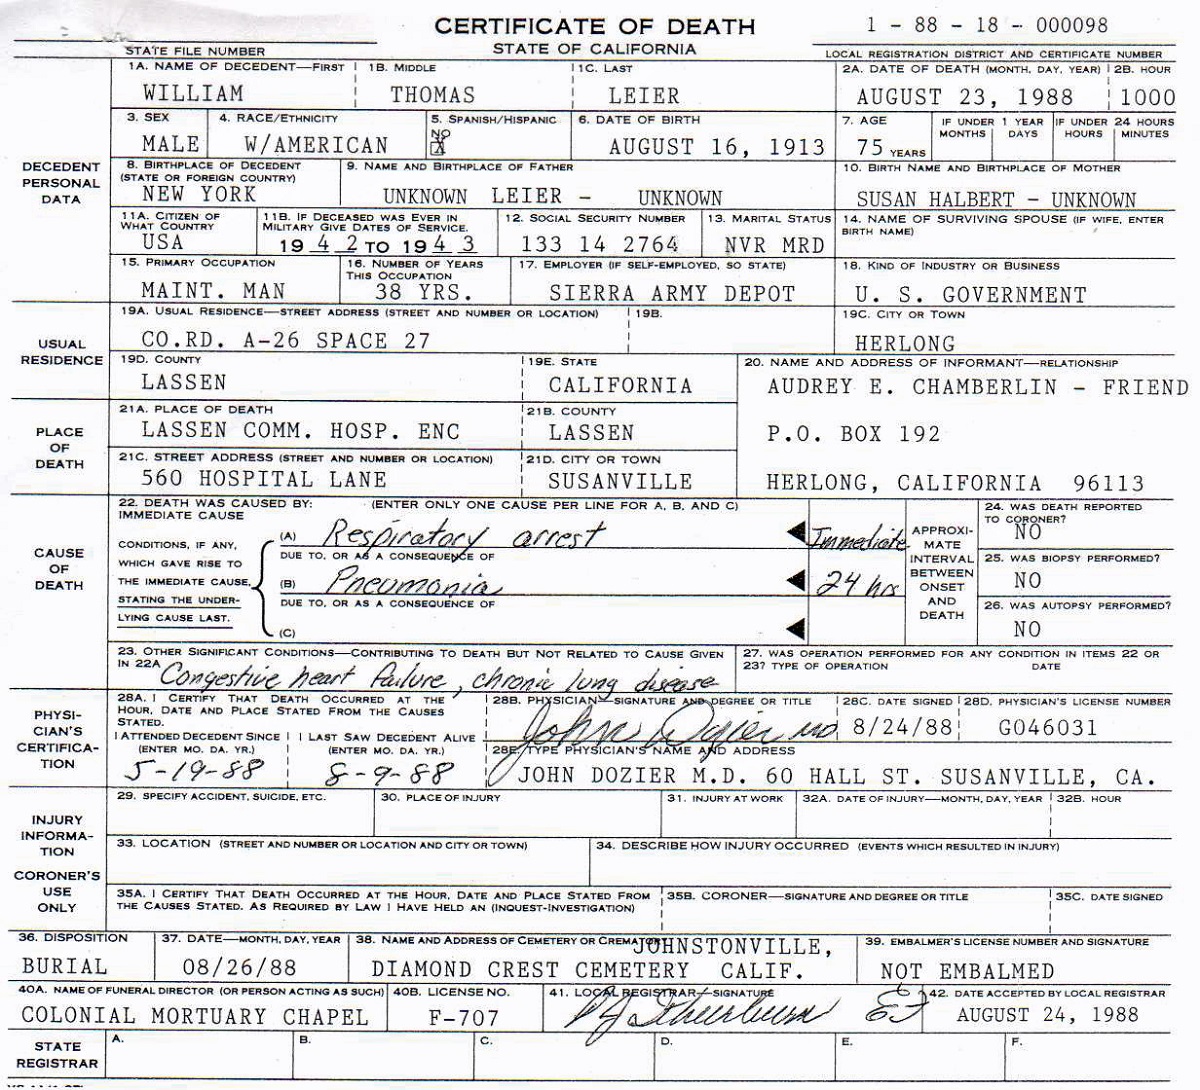 CERTIFICATE OF DEATH
STATE OF CALIFORNIA
1 - 88 - 18 - 000098
STATE FILE NUMBER
LOCAL REGISTRATION DISTRICT AND CERTIFICATE NUMBER
DECEDENT PERSONAL DATA
1A. NAME OF DECEDENT—FIRST
WILLIAM
1B. MIDDLE
THOMAS
1C. LAST
LEIER
2A. DATE OF DEATH (MONTH, DAY, YEAR)
AUGUST 23, 1988
2B. HOUR
1000
3. SEX
MALE
4. RACE/ETHNICITY
W/AMERICAN
5. SPANISH/HISPANIC
NO
X
6. DATE OF BIRTH
AUGUST 16, 1913
7. AGE
75 YEARS
IF UNDER 1 YEAR
MONTHS DAYS
IF UNDER 24 HOURS
HOURS MINUTES
8. BIRTHPLACE OF DECEDENT
(STATE OR FOREIGN COUNTRY)
NEW YORK
9. NAME AND BIRTHPLACE OF FATHER
UNKNOWN LEIER - UNKNOWN
10. BIRTH NAME AND BIRTHPLACE OF MOTHER
SUSAN HALBERT - UNKNOWN
11A. CITIZEN OF
WHAT COUNTRY
USA
11B. IF DECEASED WAS EVER IN
MILITARY GIVE DATES OF SERVICE.
1942 TO 1943
12. SOCIAL SECURITY NUMBER
133 14 2764
13. MARITAL STATUS
NVR MRD
14. NAME OF SURVIVING SPOUSE (IF WIFE, ENTER
BIRTH NAME)
15. PRIMARY OCCUPATION
MAINT. MAN
16. NUMBER OF YEARS
THIS OCCUPATION
38 YRS.
17. EMPLOYER (IF SELF-EMPLOYED, SO STATE)
SIERRA ARMY DEPOT
18. KIND OF INDUSTRY OR BUSINESS
U. S. GOVERNMENT
USUAL RESIDENCE
19A. USUAL RESIDENCE—STREET ADDRESS (STREET AND NUMBER OR LOCATION)
CO.RD. A-26 SPACE 27
19B.
19C. CITY OR TOWN
HERLONG
19D. COUNTY
LASSEN
19E. STATE
CALIFORNIA
20. NAME AND ADDRESS OF INFORMANT—RELATIONSHIP
AUDREY E. CHAMBERLIN - FRIEND
P.O. BOX 192
HERLONG, CALIFORNIA 96113
PLACE OF DEATH
21A. PLACE OF DEATH
LASSEN COMM. HOSP. ENC
21B. COUNTY
LASSEN
21C. STREET ADDRESS (STREET AND NUMBER OR LOCATION)
560 HOSPITAL LANE
21D. CITY OR TOWN
SUSANVILLE
CAUSE OF DEATH
22. DEATH WAS CAUSED BY: (ENTER ONLY ONE CAUSE PER LINE FOR A, B, AND C)
IMMEDIATE CAUSE
CONDITIONS, IF ANY,
WHICH GAVE RISE TO
THE IMMEDIATE CAUSE,
STATING THE UNDER-
LYING CAUSE LAST.
(A) Respiratory arrest Immediate
DUE TO, OR AS A CONSEQUENCE OF
(B) Pneumonia 24 hrs
DUE TO, OR AS A CONSEQUENCE OF
(C)
APPROXI-
MATE
INTERVAL
BETWEEN
ONSET
AND
DEATH
24. WAS DEATH REPORTED
TO CORONER?
NO
25. WAS BIOPSY PERFORMED?
NO
26. WAS AUTOPSY PERFORMED?
NO
23. OTHER SIGNIFICANT CONDITIONS—CONTRIBUTING TO DEATH BUT NOT RELATED TO CAUSE GIVEN
IN 22A
Congestive heart failure, chronic lung disease
27. WAS OPERATION PERFORMED FOR ANY CONDITION IN ITEMS 22 OR
23? TYPE OF OPERATION DATE
PHYSI-
CIAN'S
CERTIFICA-
TION
28A. I CERTIFY THAT DEATH OCCURRED AT THE
HOUR, DATE AND PLACE STATED FROM THE CAUSES
STATED.
I ATTENDED DECEDENT SINCE
(ENTER MO. DA. YR.)
5-19-88
I LAST SAW DECEDENT ALIVE
(ENTER MO. DA. YR.)
8-9-88
28B. PHYSICIAN—SIGNATURE AND DEGREE OR TITLE
John Dozier MD
28C. DATE SIGNED
8/24/88
28D. PHYSICIAN'S LICENSE NUMBER
G046031
28E. TYPE PHYSICIAN'S NAME AND ADDRESS
JOHN DOZIER M.D. 60 HALL ST. SUSANVILLE, CA.
INJURY
INFORMA-
TION
CORONER'S
USE
ONLY
29. SPECIFY ACCIDENT, SUICIDE, ETC.
30. PLACE OF INJURY
31. INJURY AT WORK
32A. DATE OF INJURY—MONTH, DAY, YEAR
32B. HOUR
33. LOCATION (STREET AND NUMBER OR LOCATION AND CITY OR TOWN)
34. DESCRIBE HOW INJURY OCCURRED (EVENTS WHICH RESULTED IN INJURY)
35A. I CERTIFY THAT DEATH OCCURRED AT THE HOUR, DATE AND PLACE STATED FROM
THE CAUSES STATED. AS REQUIRED BY LAW I HAVE HELD AN (INQUEST-INVESTIGATION)
35B. CORONER—SIGNATURE AND DEGREE OR TITLE
35C. DATE SIGNED
36. DISPOSITION
BURIAL
37. DATE—MONTH, DAY, YEAR
08/26/88
38. NAME AND ADDRESS OF CEMETERY OR CREMATORY
JOHNSTONVILLE,
DIAMOND CREST CEMETERY CALIF.
39. EMBALMER'S LICENSE NUMBER AND SIGNATURE
NOT EMBALMED
40A. NAME OF FUNERAL DIRECTOR (OR PERSON ACTING AS SUCH)
COLONIAL MORTUARY CHAPEL
40B. LICENSE NO.
F-707
41. LOCAL REGISTRAR—SIGNATURE
42. DATE ACCEPTED BY LOCAL REGISTRAR
AUGUST 24, 1988
STATE
REGISTRAR
A.
B.
C.
D.
E.
F.